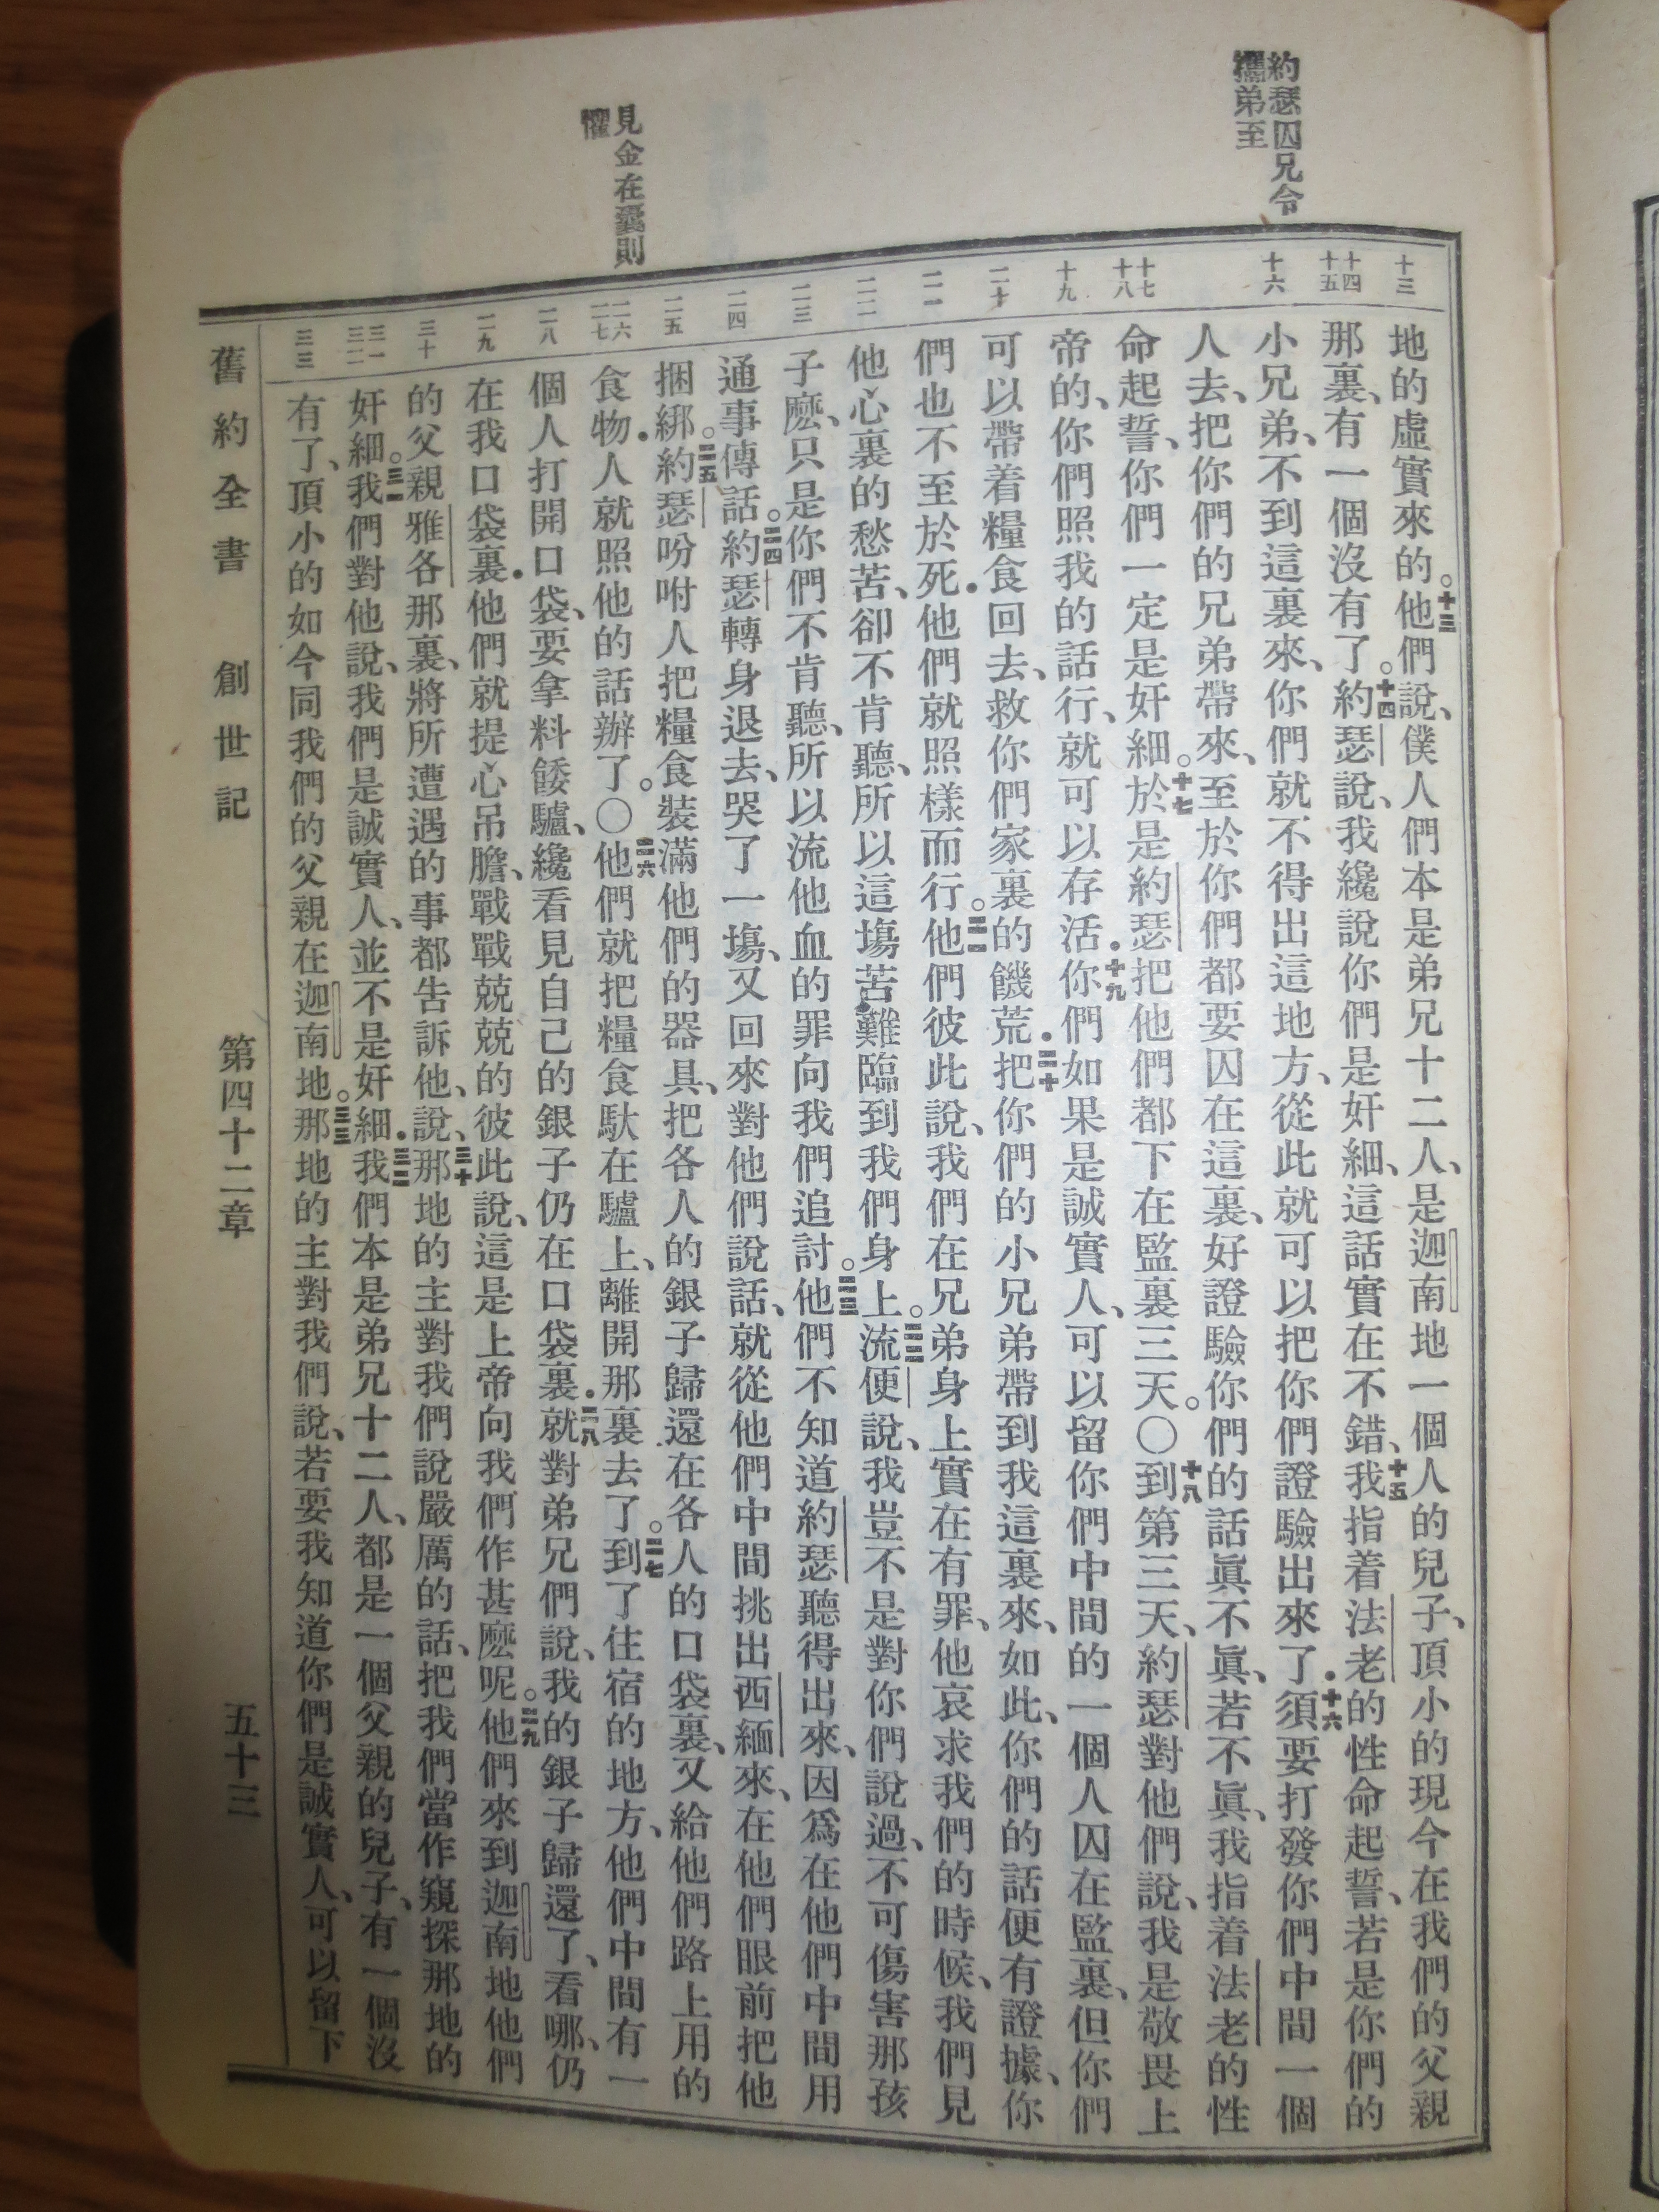 約瑟囚兄令
攜弟至
見金在囊則
懼
十三
十四
十五
十六
十七
十八
十九
二十
二一
二二
二三
二四
二五
二六
二七
二八
二九
三十
三一
三二
三三
地的虛實來的。十三他們說、僕人們本是弟兄十二人、是迦南地一個人的兒子、頂小的現今在我們的父親
那裏、有一個沒有了。十四約瑟說、我纔說你們是奸細、這話實在不錯、十五我指着法老的性命起誓、若是你們的
小兄弟、不到這裏來、你們就不得出這地方、從此就可以把你們證驗出來了．十六須要打發你們中間一個
人去、把你們的兄弟帶來、至於你們都要囚在這裏、好證驗你們的話眞不眞、若不眞、我指着法老的性
命起誓、你們一定是奸細。十七於是約瑟把他們都下在監裏三天。〇十八到第三天、約瑟對他們說、我是敬畏上
帝的、你們照我的話行、就可以存活．十九你們如果是誠實人、可以留你們中間的一個人囚在監裏、但你們
可以帶着糧食回去、救你們家裏的饑荒．二十把你們的小兄弟帶到我這裏來、如此、你們的話便有證據、你
們也不至於死．他們就照樣而行。二一他們彼此說、我們在兄弟身上實在有罪、他哀求我們的時候、我們見
他心裏的愁苦、卻不肯聽、所以這場苦難臨到我們身上。二二流便說、我豈不是對你們說過、不可傷害那孩
子麼、只是你們不肯聽、所以流他血的罪向我們追討。二三他們不知道約瑟聽得出來、因爲在他們中間用
通事傳話。二四約瑟轉身退去、哭了一塲、又回來對他們說話、就從他們中間挑出西緬來、在他們眼前把他
捆綁。二五約瑟吩咐人把糧食裝滿他們的器具、把各人的銀子歸還在各人的口袋裏、又給他們路上用的
食物．人就照他的話辦了。〇二六他們就把糧食馱在驢上、離開那裏去了。二七到了住宿的地方、他們中間有一
個人打開口袋、要拿料餧驢、纔看見自己的銀子仍在口袋裏．二八就對弟兄們說、我的銀子歸還了、看哪、仍
在我口袋裏．他們就提心吊膽、戰戰兢兢的彼此說、這是上帝向我們作甚麼呢。二九他們來到迦南地他們
的父親雅各那裏、將所遭遇的事都告訴他、說、三十那地的主對我們說嚴厲的話、把我們當作窺探那地的
奸細。三一我們對他說、我們是誠實人、並不是奸細．三二我們本是弟兄十二人、都是一個父親的兒子、有一個沒
有了、頂小的如今同我們的父親在迦南地。三三那地的主對我們說、若要我知道你們是誠實人、可以留下
舊約全書 創世記 第四十二章 五十三